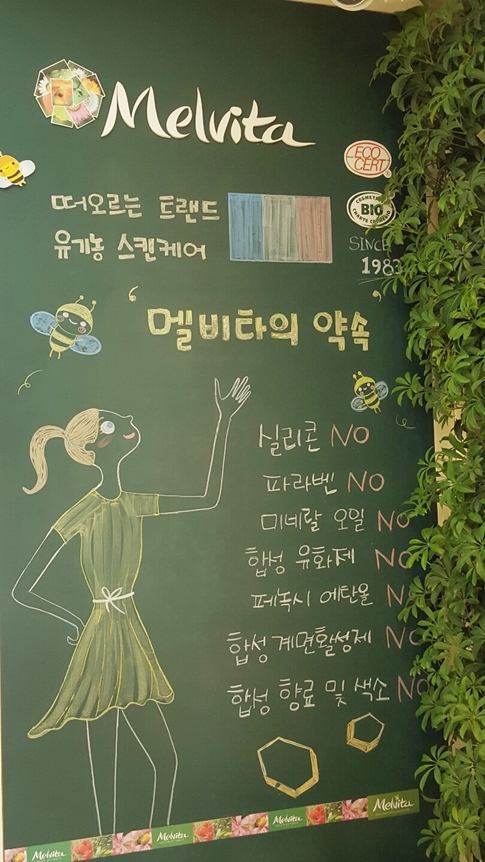 Melvita
ECO
CERT
떠오르는 트랜드
유기농 스킨케어
COSMETIQUE
BIO
SINCE
1983
멜비타의 약속
실리콘 NO
파라벤 NO
미네랄 오일 NO
합성 유화제 NO
페녹시 에탄올 N
합성 계면활성제 NO
합성 향료 및 색소 NO
Melvita Melvita Melvita Melvita